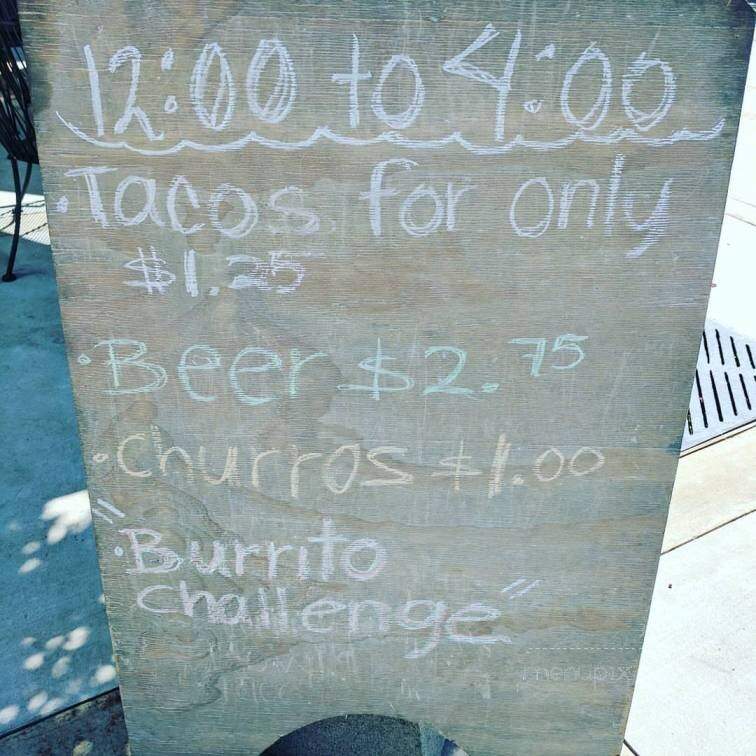 12:00 to 4:00
·Tacos for only
$1.25
·Beer $2.75
·Churros $1.00
"·Burrito
challenge"
menupix